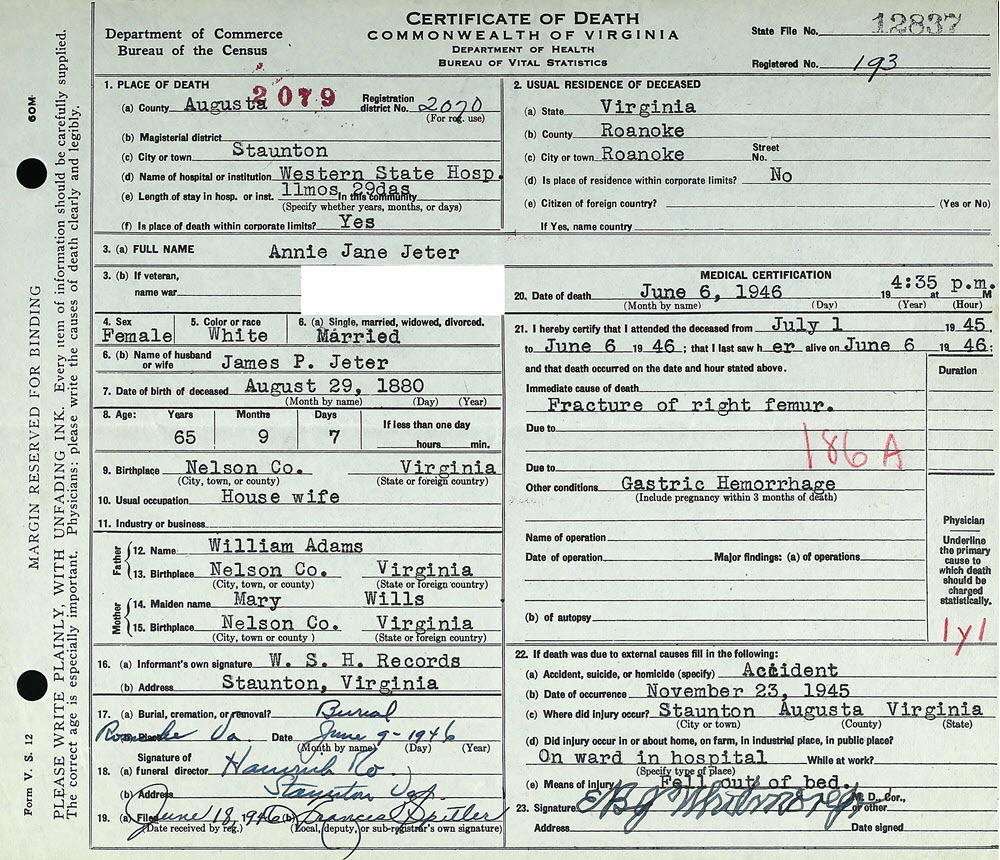 CERTIFICATE OF DEATH
COMMONWEALTH OF VIRGINIA
DEPARTMENT OF HEALTH
BUREAU OF VITAL STATISTICS
Department of Commerce
Bureau of the Census
State File No. 12837
Registered No. 193
MARGIN RESERVED FOR BINDING
60M
PLEASE WRITE PLAINLY, WITH UNFADING INK. Every item of information should be carefully supplied.
The correct age is especially important. Physicians: please write the causes of death clearly and legibly.
Form V. S. 12
1. PLACE OF DEATH
2079
(a) County Augusta Registration district No. 2070
(For reg. use)
(b) Magisterial district
(c) City or town Staunton
(d) Name of hospital or institution Western State Hosp.
(e) Length of stay in hosp. or inst. 11mos 29das In this community
(Specify whether years, months, or days)
(f) Is place of death within corporate limits? Yes
2. USUAL RESIDENCE OF DECEASED
(a) State Virginia
(b) County Roanoke
(c) City or town Roanoke Street No.
(d) Is place of residence within corporate limits? No
(e) Citizen of foreign country? (Yes or No)
If Yes, name country
3. (a) FULL NAME Annie Jane Jeter
3. (b) If veteran,
name war
4. Sex Female
5. Color or race White
6. (a) Single, married, widowed, divorced. Married
6. (b) Name of husband or wife James P. Jeter
7. Date of birth of deceased August 29, 1880
(Month by name) (Day) (Year)
8. Age: Years Months Days If less than one day
65 9 7 hours min.
9. Birthplace Nelson Co. Virginia
(City, town, or county) (State or foreign country)
10. Usual occupation House wife
11. Industry or business
Father
12. Name William Adams
13. Birthplace Nelson Co. Virginia
(City, town, or county) (State or foreign country)
Mother
14. Maiden name Mary Wills
15. Birthplace Nelson Co. Virginia
(City, town or county ) (State or foreign country)
16. (a) Informant's own signature W. S. H. Records
(b) Address Staunton, Virginia
17. (a) Burial, cremation, or removal? Burial
Roanoke Va. Date June 9-1946
(Month by name) (Day) (Year)
Signature of
18. (a) funeral director Co.
(b) Address Staunton Va.
19. (a) Filed June 18, 1946 (b) Frances Spitler
(Date received by reg.) (Local, deputy, or sub-registrar's own signature)
MEDICAL CERTIFICATION
20. Date of death June 6, 1946 19 at 4:35 p.m. M
(Month by name) (Day) (Year) (Hour)
21. I hereby certify that I attended the deceased from July 1 1945,
to June 6 1946; that I last saw her alive on June 6 1946;
and that death occurred on the date and hour stated above.
Duration
Immediate cause of death
Fracture of right femur.
Due to
186 A
Due to
Other conditions Gastric Hemorrhage
(Include pregnancy within 3 months of death)
Name of operation
Date of operation Major findings: (a) of operations
(b) of autopsy
Physician
Underline the primary cause to which death should be charged statistically.
1y1
22. If death was due to external causes fill in the following:
(a) Accident, suicide, or homicide (specify) Accident
(b) Date of occurrence November 23, 1945
(c) Where did injury occur? Staunton Augusta Virginia
(City or town) (County) (State)
(d) Did injury occur in or about home, on farm, in industrial place, in public place?
On ward in hospital While at work?
(Specify type of place)
(e) Means of injury Fell out of bed.
23. Signature M. D., Cor., or other
Address Date signed